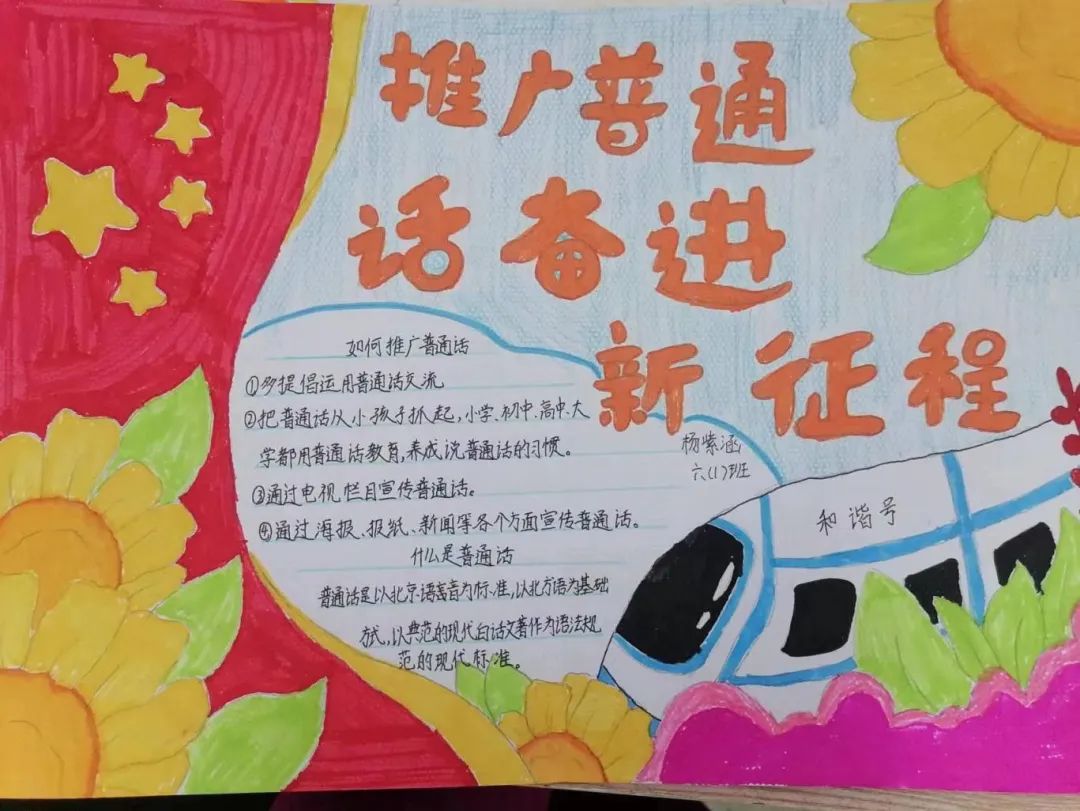 推广普通
话奋进
新征程
如何推广普通话
①多提倡运用普通话交流
②把普通话从小孩子抓起,小学、初中、高中、大
学都用普通话教育,养成说普通话的习惯。
③通过电视栏目宣传普通话。
④通过海报、报纸、新闻等各个方面宣传普通话。
什么是普通话
普通话是以北京语言音为标准,以北方语为基础
方式,以典范的现代白话文著作为语法规
范的现代标准。
杨紫涵
六(1)班
和谐号